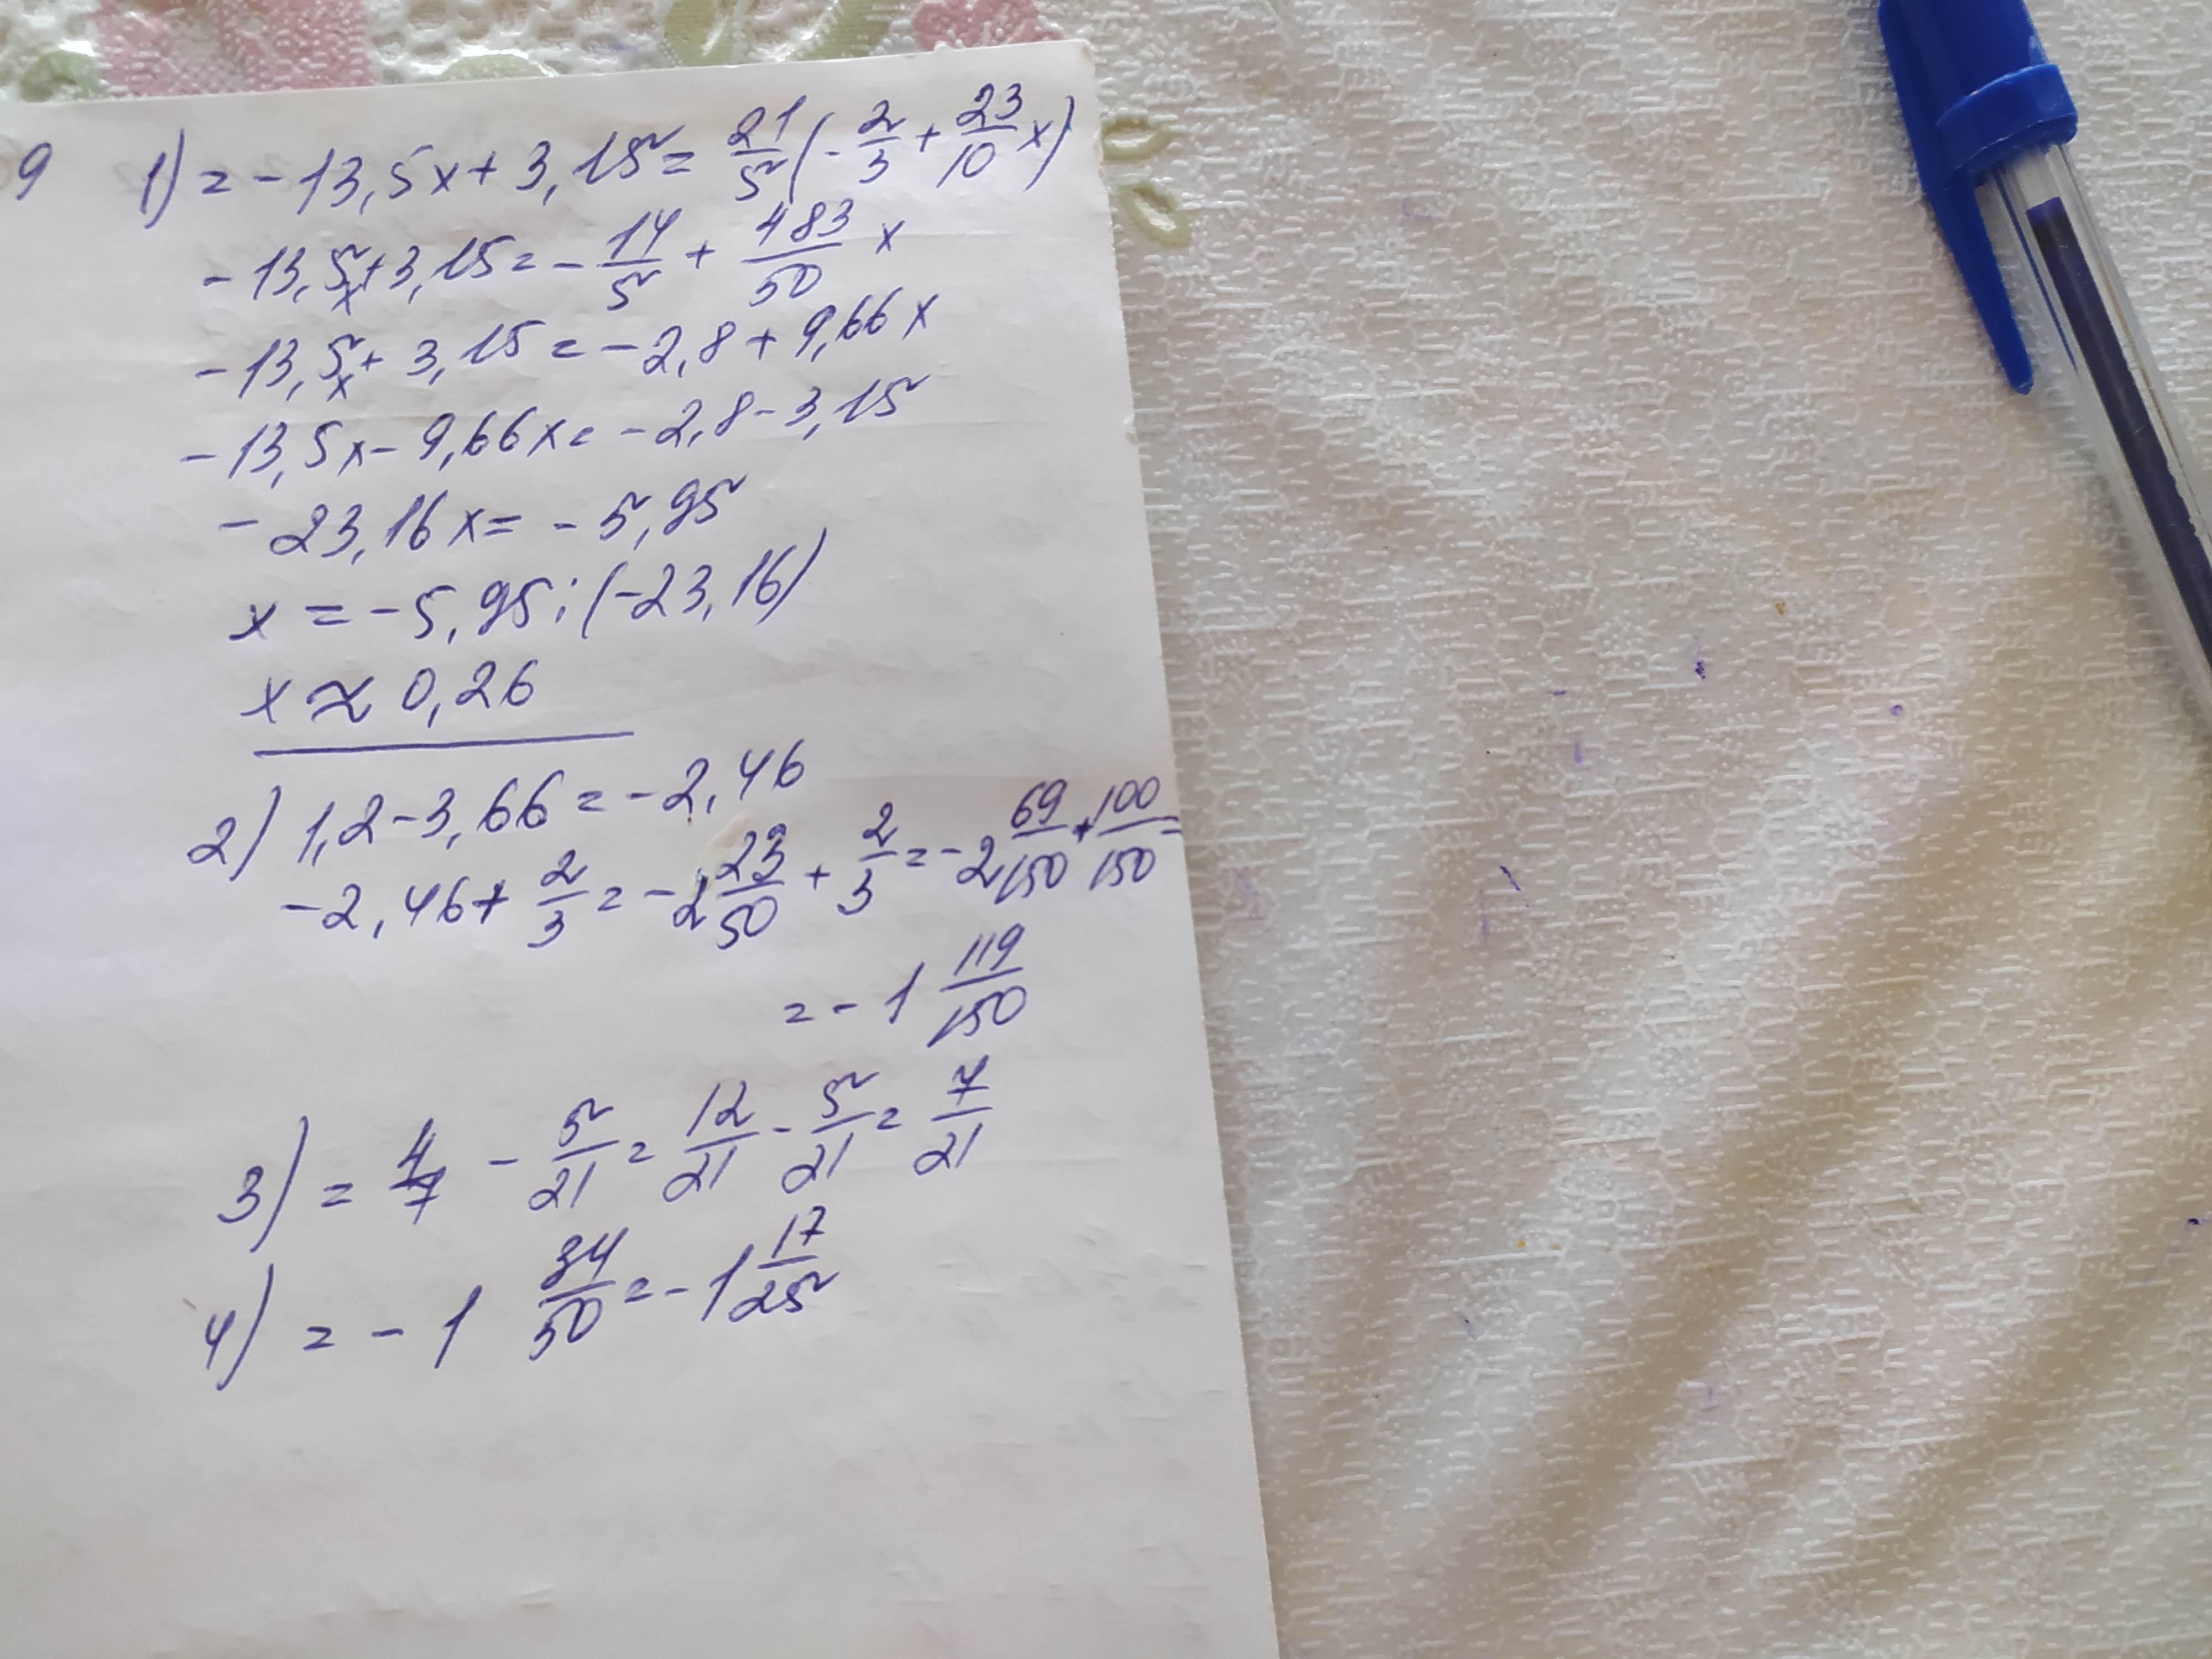 9 1) = -13,5x + 3,15 = 21/5 (-2/3 + 23/10 x)
-13,5x + 3,15 = -14/5 + 483/50 x
-13,5x + 3,15 = -2,8 + 9,66x
-13,5x - 9,66x = -2,8 - 3,15
-23,16x = -5,95
x = -5,95 : (-23,16)
x ≈ 0,26
2) 1,2 - 3,66 = -2,46
-2,46 + 2/3 = -2 23/50 + 2/3 = -2 69/150 + 100/150 =
= -1 119/150
3) = 4/7 - 5/21 = 12/21 - 5/21 = 7/21
4) = -1 34/50 = -1 17/25